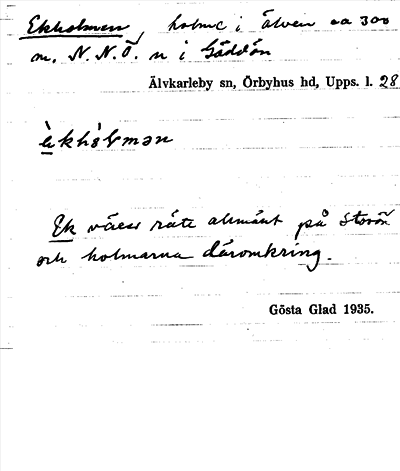 Ekholmen, holme i älven ca 300
m. N.N.Ö. n i Gäddön
Älvkarleby sn, Örbyhus hd, Upps. l. 28
Ek växer rätt allmänt på Storön
och holmarna däromkring.
Gösta Glad 1935.